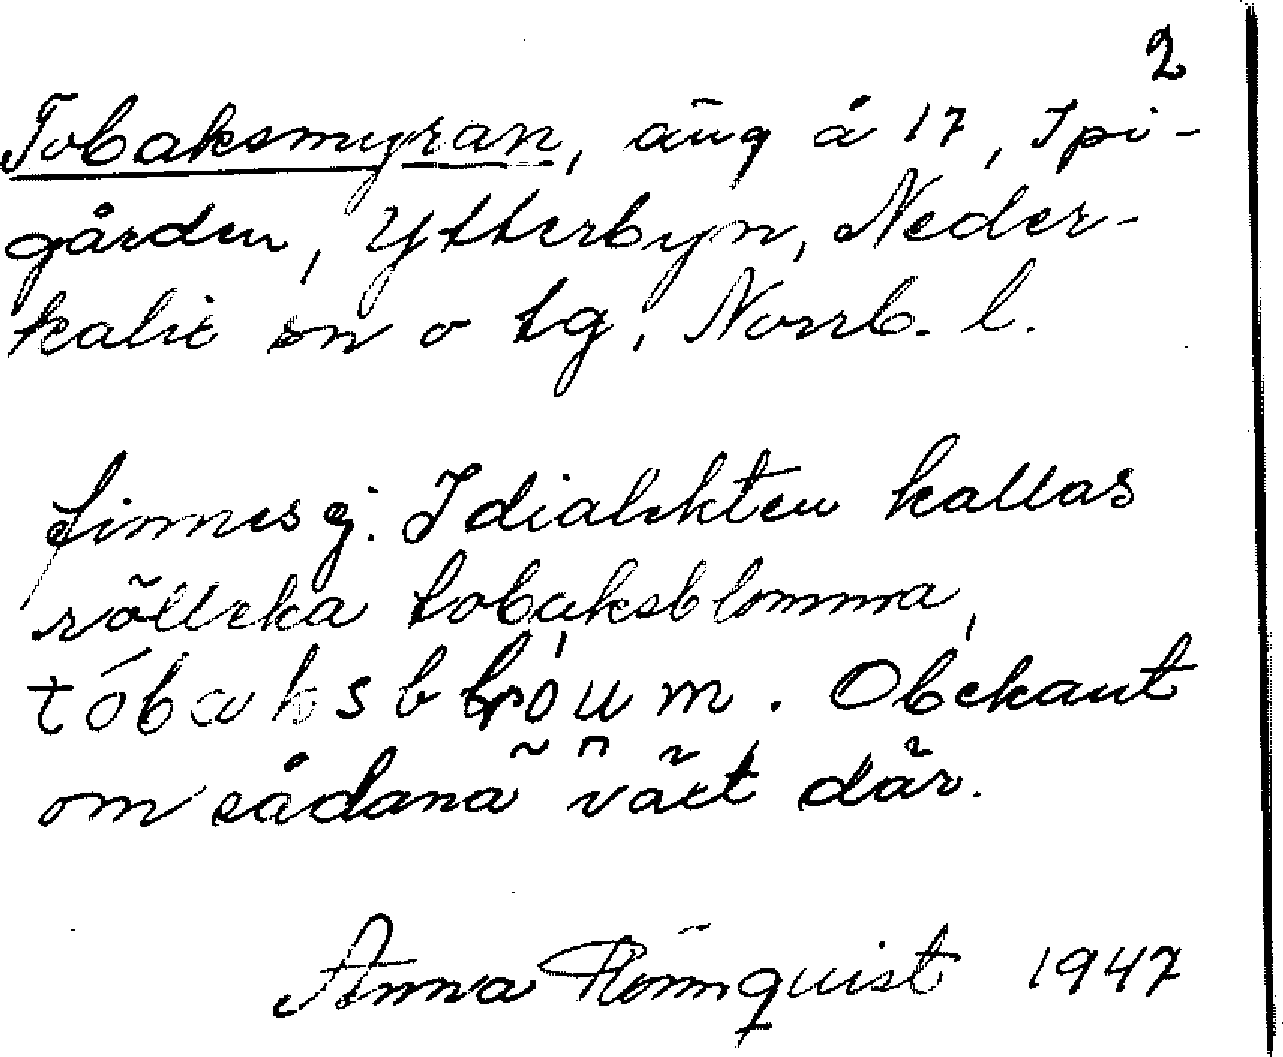 2
Tobaksmyran, äng å 17, Spi-
gården, Ytterbyn, Neder-
kalix sn o tg, Norrb. l.
finnes ej. I dialekten kallas
rölleka tobaksblomma,
tóbaksbḷo̤u̯m. Obekant
om sådana växt där.
Anna Rönnquist 1947